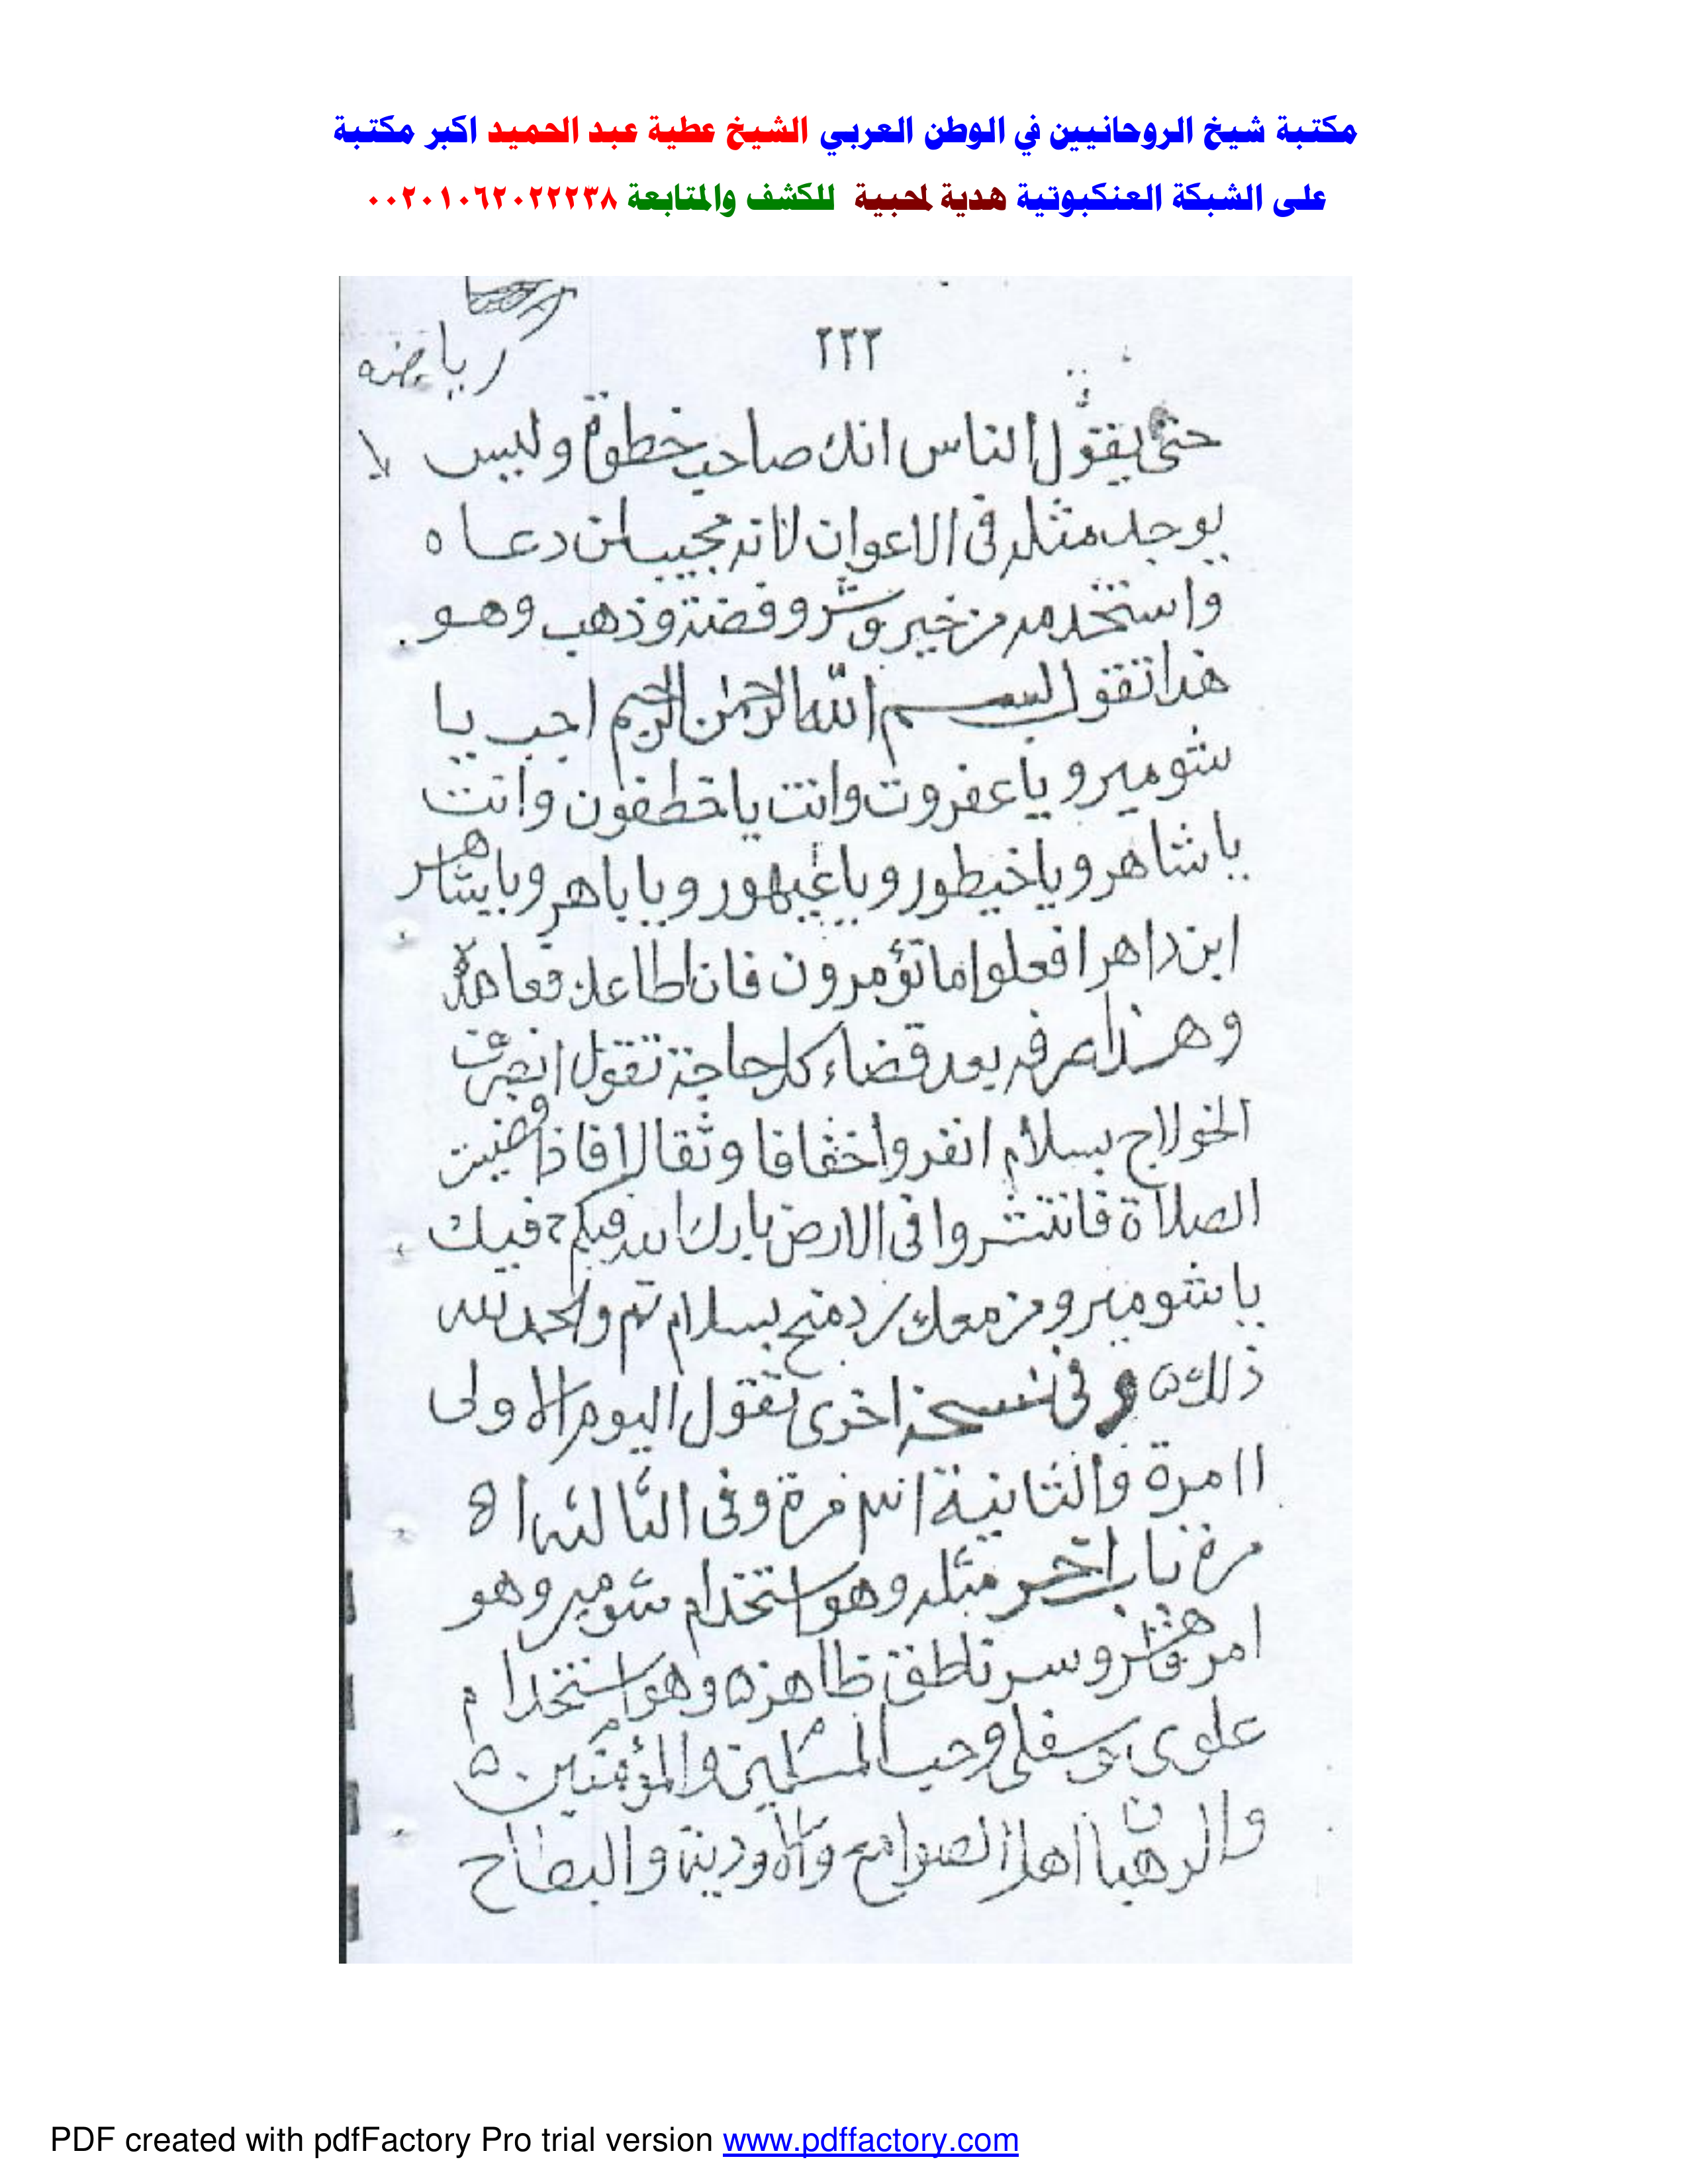 مكتبة شيخ الروحانيين في الوطن العربي الشيخ عطية عبد الحميد اكبر مكتبة
على الشبكة العنكبوتية هدية لمحبية للكشف والمتابعة ٠٠٢٠١٠٦٢٠٢٢٢٣٨
٢٢٢
رياضه
حتى يقول الناس انك صاحب خطوة وليس لا
يوجد مثله فى الاعوان لانه مجيب لمن دعاه
واستخدمه من خير وشر وفضة وذهب وهو
هذا تقول بسم الله الرحمن الرحيم اجب يا
شومير ويا عفروت وانت يا خطفون وانت
يا شاهر ويا خيطور ويا غيهور ويا باهر ويا شاهر
ابن داهر افعلوا ما تؤمرون فان اطاعك فعاهده
وهذا صرفه بعد قضاء كل حاجة تقول انصرف
الخولاج بسلام انفروا خفافا وثقالا فاذا قضيت
الصلاة فانتشروا فى الارض بارك الله فيكم وفيك
يا شومير ومن معك بسلام تم والحمد لله
ذلك وفى نسخة اخرى تقول اليوم الاولى
١١ مرة والثانية مرة وفى الثالثه ٥١
مرة باب اخر مثله وهو استخدام شومير وهو
امر وسر ناطق ظاهره وهو استخدام
علوى وسفلى وحب المسلمين والمؤمنين
والرهبان اهل الصوامع والاودية والبطاح
PDF created with pdfFactory Pro trial version www.pdffactory.com